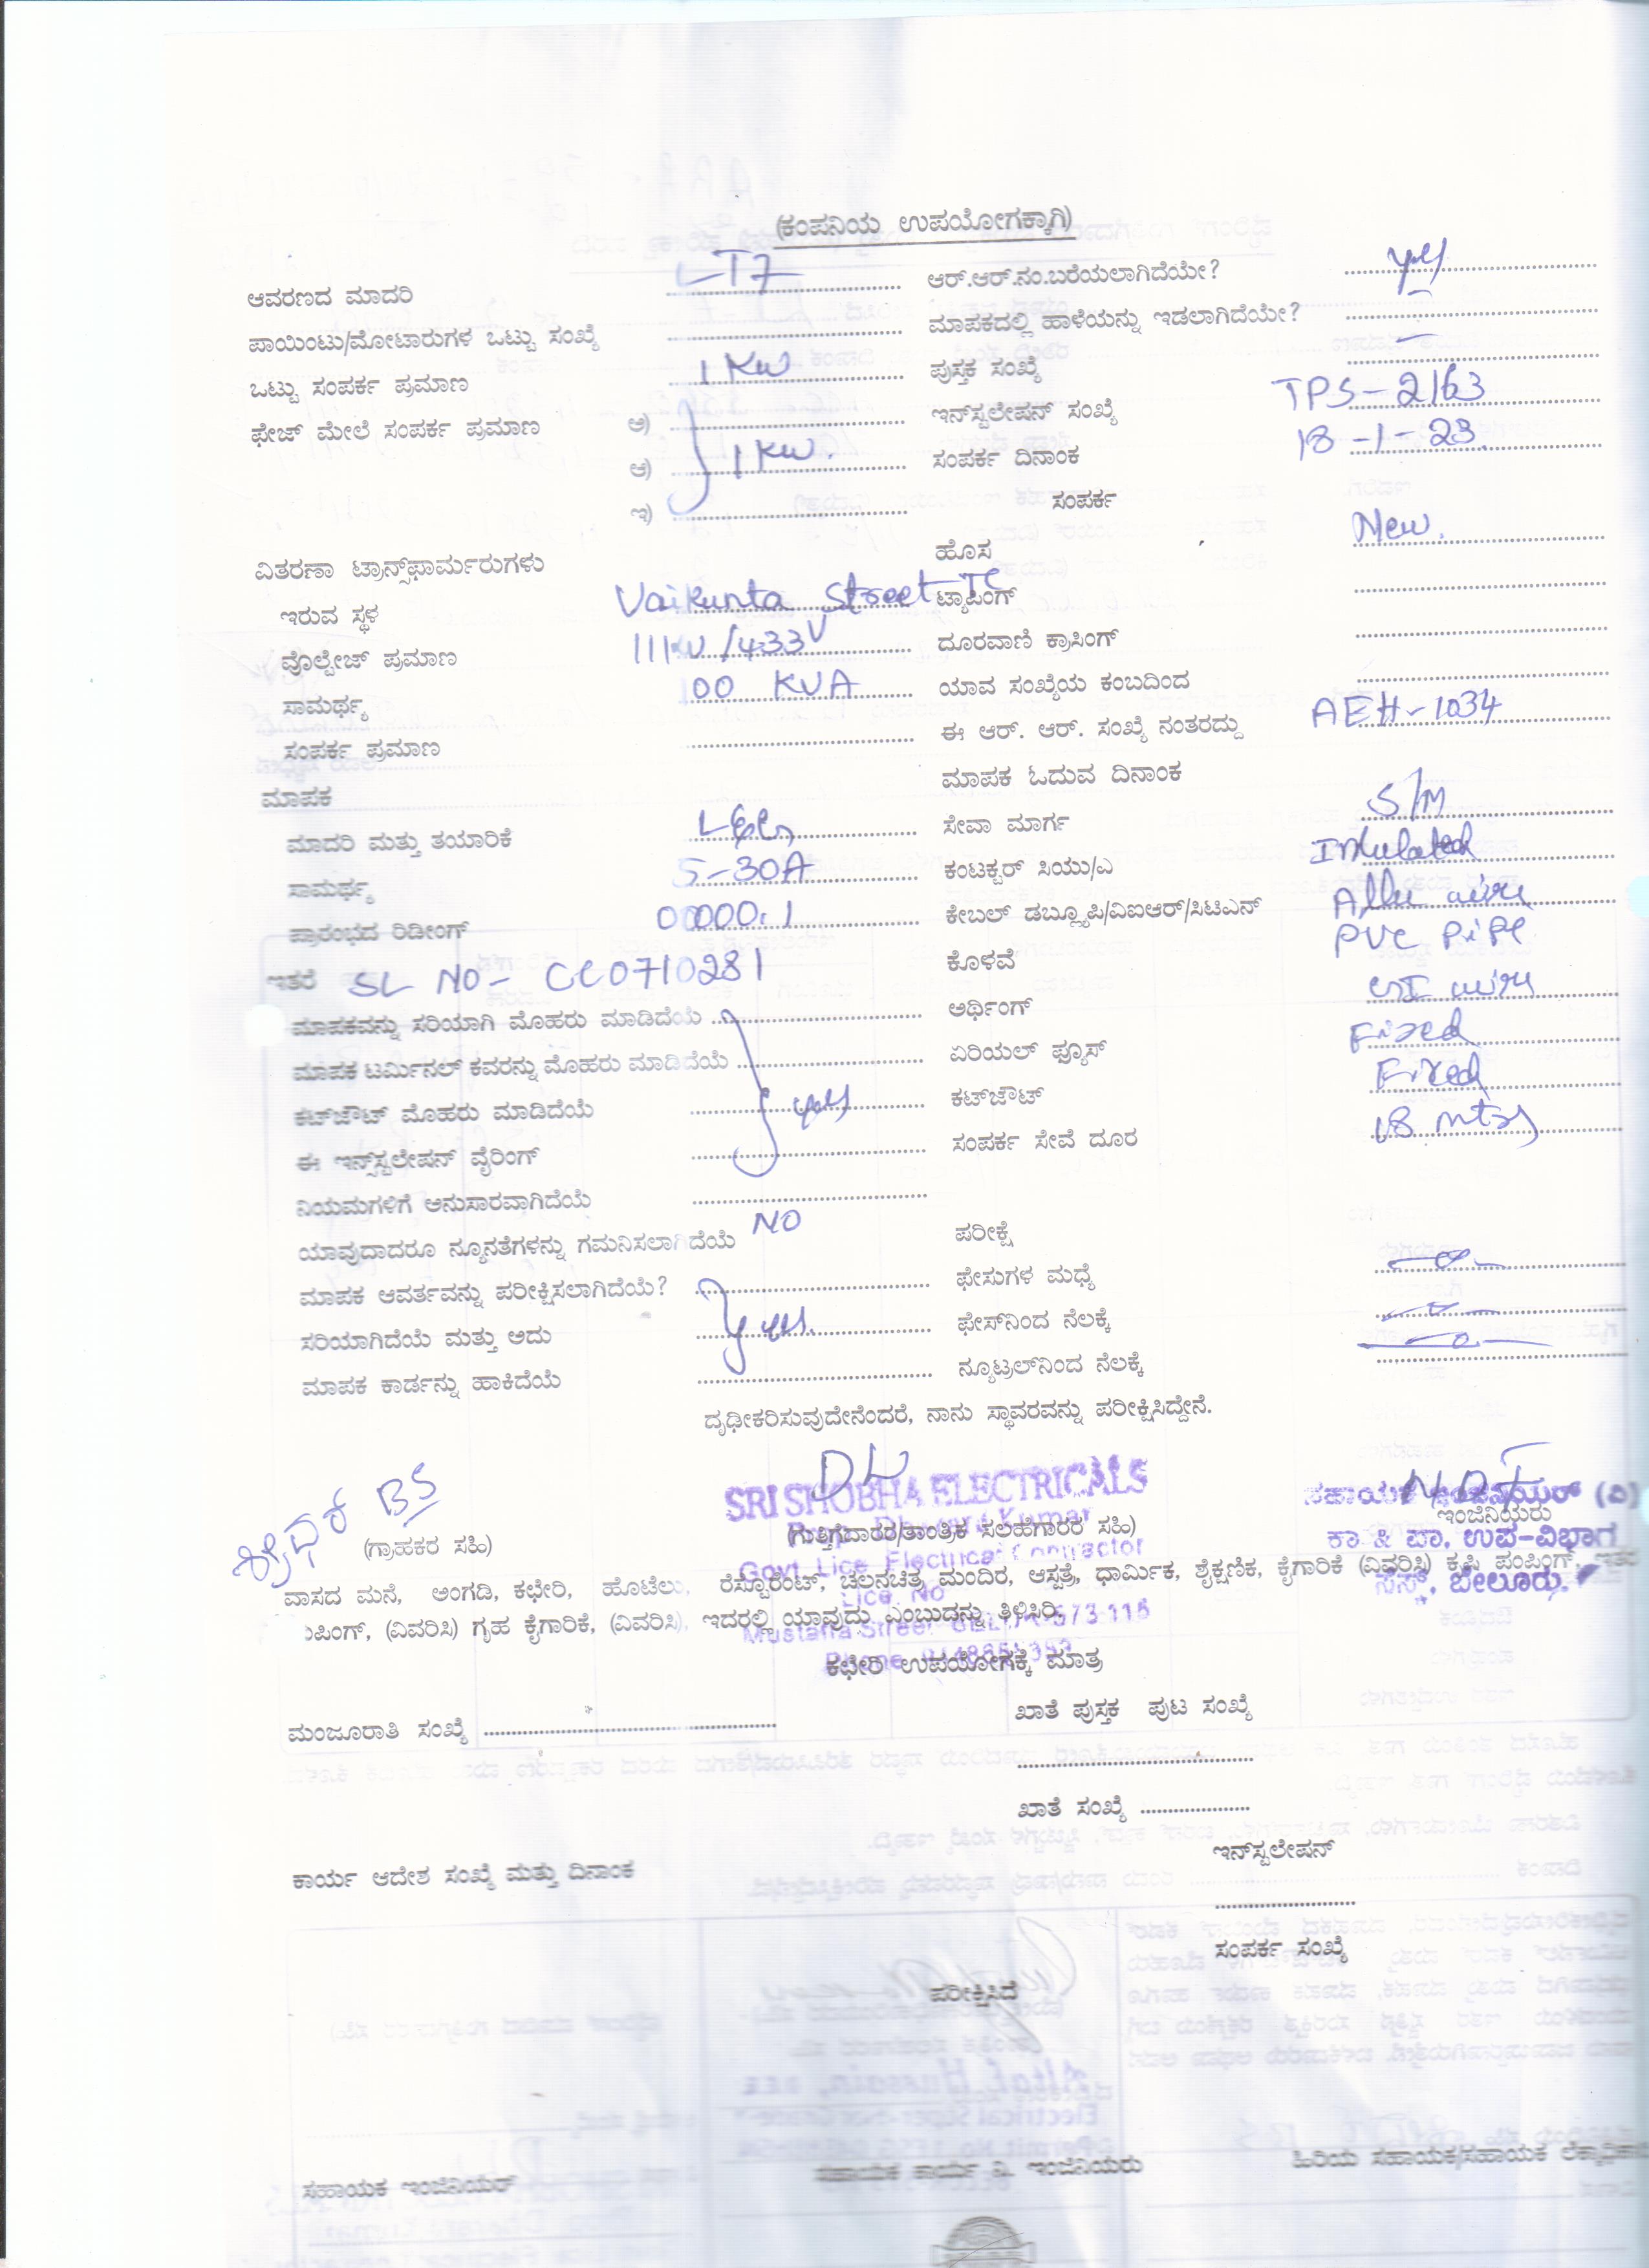 (ಕಂಪನಿಯ ಉಪಯೋಗಕ್ಕಾಗಿ)
ಆವರಣದ ಮಾದರಿ LT7 ಆರ್.ಆರ್.ನಂ.ಬರೆಯಲಾಗಿದೆಯೇ? yes
ಪಾಯಿಂಟು/ಮೋಟಾರುಗಳ ಒಟ್ಟು ಸಂಖ್ಯೆ ಮಾಪಕದಲ್ಲಿ ಹಾಳೆಯನ್ನು ಇಡಲಾಗಿದೆಯೇ?
ಒಟ್ಟು ಸಂಪರ್ಕ ಪ್ರಮಾಣ 1 KW ಪುಸ್ತಕ ಸಂಖ್ಯೆ
ಫೇಜ್ ಮೇಲೆ ಸಂಪರ್ಕ ಪ್ರಮಾಣ ಅ) ಇನ್‌ಸ್ಟಲೇಷನ್ ಸಂಖ್ಯೆ TPS-2163
ಆ) 1 KW. ಸಂಪರ್ಕ ದಿನಾಂಕ 18-1-23.
ಇ) ಸಂಪರ್ಕ
ಹೊಸ New.
ವಿತರಣಾ ಟ್ರಾನ್ಸ್‌ಫಾರ್ಮರುಗಳು
ಇರುವ ಸ್ಥಳ Vaikunta Street TC ಟ್ಯಾಪಿಂಗ್
ವೊಲ್ಟೇಜ್ ಪ್ರಮಾಣ 11KV/433V ದೂರವಾಣಿ ಕ್ರಾಸಿಂಗ್
ಸಾಮರ್ಥ್ಯ 100 KVA ಯಾವ ಸಂಖ್ಯೆಯ ಕಂಬದಿಂದ
ಸಂಪರ್ಕ ಪ್ರಮಾಣ ಈ ಆರ್. ಆರ್. ಸಂಖ್ಯೆ ನಂತರದ್ದು AEH-1034
ಮಾಪಕ ಮಾಪಕ ಓದುವ ದಿನಾಂಕ
ಮಾದರಿ ಮತ್ತು ತಯಾರಿಕೆ ಸೇವಾ ಮಾರ್ಗ S/M
ಸಾಮರ್ಥ್ಯ 5-30A ಕಂಟಕ್ಟರ್ ಸಿಯು/ಎ Insulated
ಪ್ರಾರಂಭದ ರಿಡೀಂಗ್ 00000.1 ಕೇಬಲ್ ಡಬ್ಲ್ಯೂಪಿ/ವಿಐಆರ್/ಸಿಟಿಎನ್ Allu wire
ಇತರೆ SL NO- CC0710281 ಕೊಳವೆ PVC Pipe
ಮಾಪಕವನ್ನು ಸರಿಯಾಗಿ ಮೊಹರು ಮಾಡಿದೆಯೆ ಅರ್ಥಿಂಗ್ GI wire
ಮಾಪಕ ಟರ್ಮಿನಲ್ ಕವರನ್ನು ಮೊಹರು ಮಾಡಿದೆಯೆ ಏರಿಯಲ್ ಫ್ಯೂಸ್ Fixed
ಕಟ್‌ಔಟ್ ಮೊಹರು ಮಾಡಿದೆಯೆ yes ಕಟ್‌ಔಟ್ Fixed
ಈ ಇನ್ಸ್‌ಸ್ಟಲೇಷನ್ ವೈರಿಂಗ್ ಸಂಪರ್ಕ ಸೇವೆ ದೂರ 18 mts
ನಿಯಮಗಳಿಗೆ ಅನುಸಾರವಾಗಿದೆಯೆ
ಯಾವುದಾದರೂ ನ್ಯೂನತೆಗಳನ್ನು ಗಮನಿಸಲಾಗಿದೆಯೆ NO ಪರೀಕ್ಷೆ
ಮಾಪಕ ಆವರ್ತವನ್ನು ಪರೀಕ್ಷಿಸಲಾಗಿದೆಯೆ? ಫೇಸುಗಳ ಮಧ್ಯೆ
ಸರಿಯಾಗಿದೆಯೆ ಮತ್ತು ಅದು yes. ಫೇಸ್‌ನಿಂದ ನೆಲಕ್ಕೆ
ಮಾಪಕ ಕಾರ್ಡನ್ನು ಹಾಕಿದೆಯೆ ನ್ಯೂಟ್ರಲ್‌ನಿಂದ ನೆಲಕ್ಕೆ
ದೃಢೀಕರಿಸುವುದೇನೆಂದರೆ, ನಾನು ಸ್ಥಾವರವನ್ನು ಪರೀಕ್ಷಿಸಿದ್ದೇನೆ.
ಶ್ರೀಧರ BS
SRI SHOBHA ELECTRICALS ಸಹಾಯಕ ಇಂಜಿನಿಯರ್ (ವಿ)
(ಗ್ರಾಹಕರ ಸಹಿ) (ಗುತ್ತಿಗೆದಾರರ/ತಾಂತ್ರಿಕ ಸಲಹೆಗಾರರ ಸಹಿ) ಇಂಜಿನಿಯರು
ಕಾ & ಪಾ. ಉಪ-ವಿಭಾಗ
Govt Lice Electrical Contractor
ವಾಸದ ಮನೆ, ಅಂಗಡಿ, ಕಛೇರಿ, ಹೊಟೆಲು, ರೆಸ್ಟೊರೆಂಟ್, ಚಲನಚಿತ್ರ ಮಂದಿರ, ಆಸ್ಪತ್ರೆ, ಧಾರ್ಮಿಕ, ಶೈಕ್ಷಣಿಕ, ಕೈಗಾರಿಕೆ (ವಿವರಿಸಿ) ಕೃಷಿ ಪಂಪಿಂಗ್, ಇತರ
Lice. No ಬೇಲೂರು.
ಪಿಂಗ್, (ವಿವರಿಸಿ) ಗೃಹ ಕೈಗಾರಿಕೆ, (ವಿವರಿಸಿ), ಇದರಲ್ಲಿ ಯಾವುದು ಎಂಬುದನ್ನು ತಿಳಿಸಿರಿ.
573 115
ಕಛೇರಿ ಉಪಯೋಗಕ್ಕೆ ಮಾತ್ರ
ಮಂಜೂರಾತಿ ಸಂಖ್ಯೆ ಖಾತೆ ಪುಸ್ತಕ ಪುಟ ಸಂಖ್ಯೆ
ಖಾತೆ ಸಂಖ್ಯೆ
ಇನ್‌ಸ್ಟಲೇಷನ್
ಕಾರ್ಯ ಆದೇಶ ಸಂಖ್ಯೆ ಮತ್ತು ದಿನಾಂಕ
ಸಂಪರ್ಕ ಸಂಖ್ಯೆ
ಪರೀಕ್ಷಿಸಿದೆ
ಸಹಾಯಕ ಇಂಜಿನಿಯರ್ ಸಹಾಯಕ ಕಾರ್ಯ ನಿ. ಇಂಜಿನಿಯರು ಹಿರಿಯ ಸಹಾಯಕ/ಸಹಾಯಕ